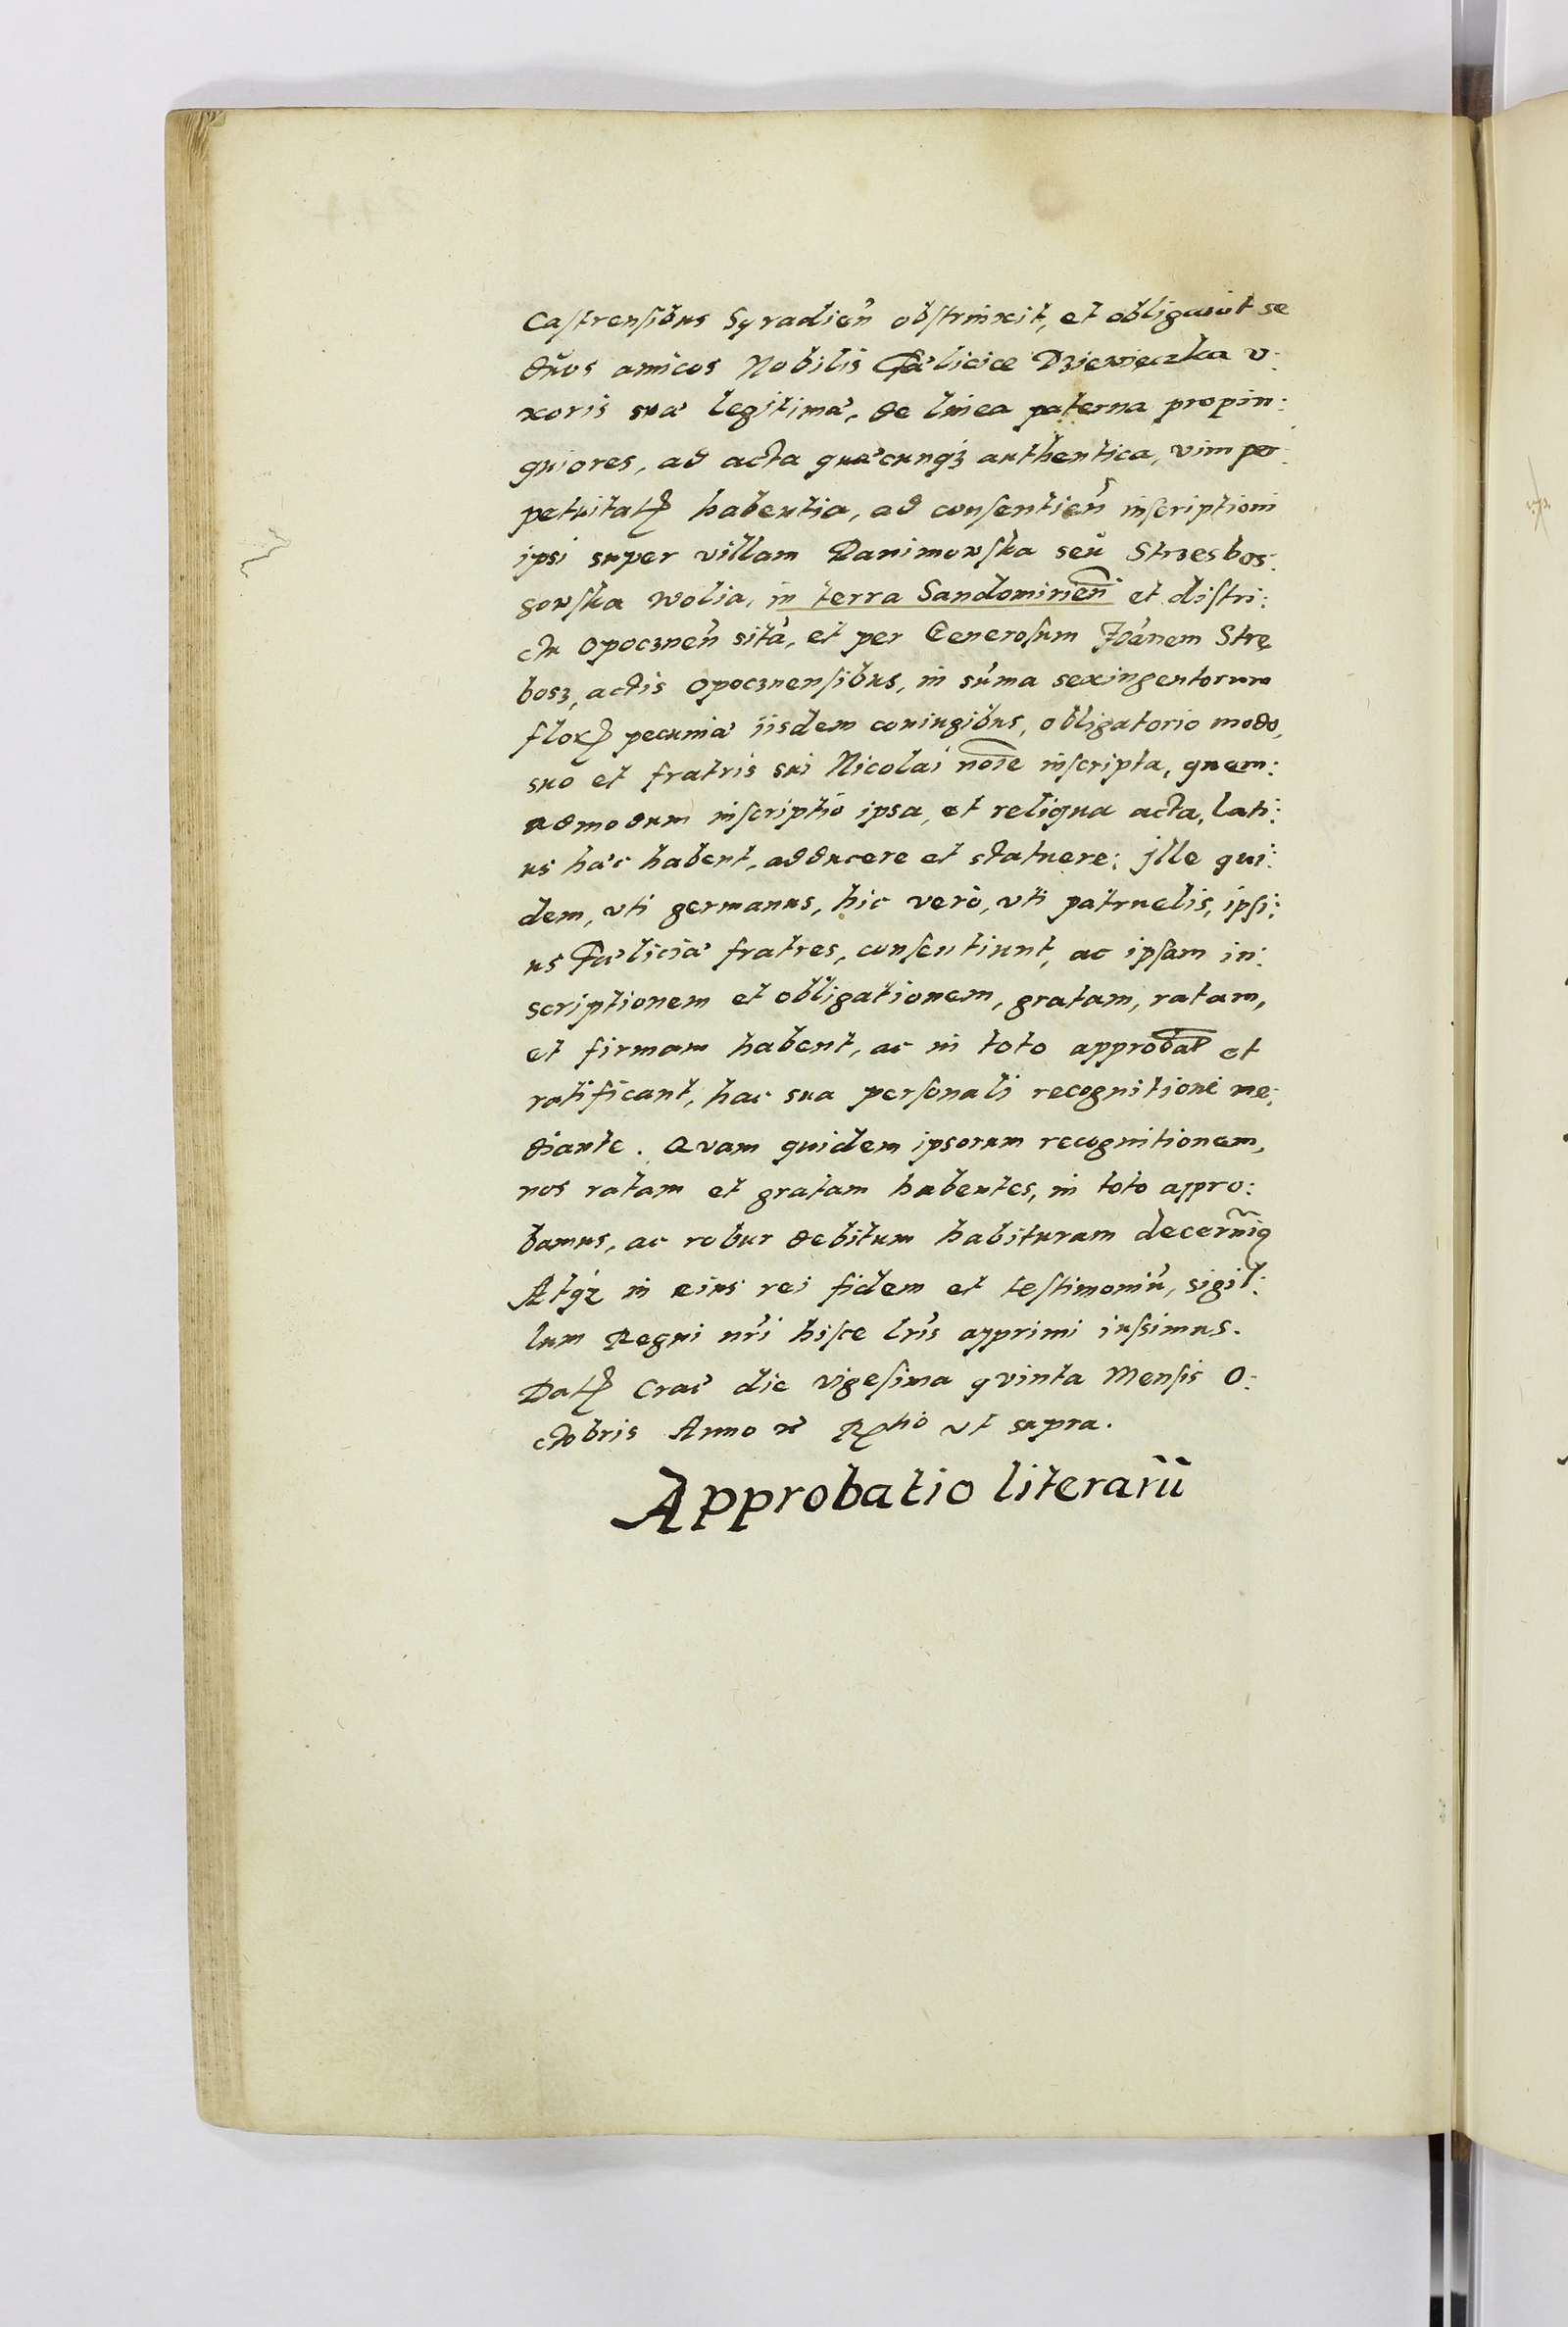 Castrensibus Syradień obstrinxit, et obligavit se
duos amicos Nobilis Fæliciæ Dziewięczka v:
xoris suæ legitimæ, de linea paterna propin:
quiores, ad acta quæcunqȝ authentica, vim per:
petuitatꝭ habentia, ad consentień inscriptioni
ipsi super villam Danimowska seu Strzesbos:
gowska Wolia, in terra Sandomirień et distri:
ctu Opoczneń sitæ, et per Generosum Joãnem Strę
bosz, actis Opocznensibus, in suma sexingentorum
florꝭ pecuniæ iisdem coniugibus, obligatorio modo,
suo et fratris sui Nicolai noĩe inscripta, quem:
admodum inscriptio ipsa, et reliqua acta, lati:
us hæc habent, adducere et statuere: jlle qui:
dem, vti germanus, hic verò, vti patruelis, ipsi:
us Fæliciæ fratres, consentiunt, ac ipsam in:
scriptionem et obligationem, gratam, ratam,
et firmam habent, ac in toto approbãt et
ratificant, hac sua personali recognitione me:
diante. Qvam quidem ipsorum recognitionem,
nos ratam et gratam habentes, in toto appro:
bamus, ac robur debitum habituram decernĩꝰ
Atqȝ in eius rei fidem et testimoniũ, sigil:
lum Regni nr̃i hisce lr̃is apprimi iussimus.
Datꝭ Crac̃ die vigesima qvinta Mensis O:
ctobris Anno et Rꝭtio vt supra.
Approbatio literarũ